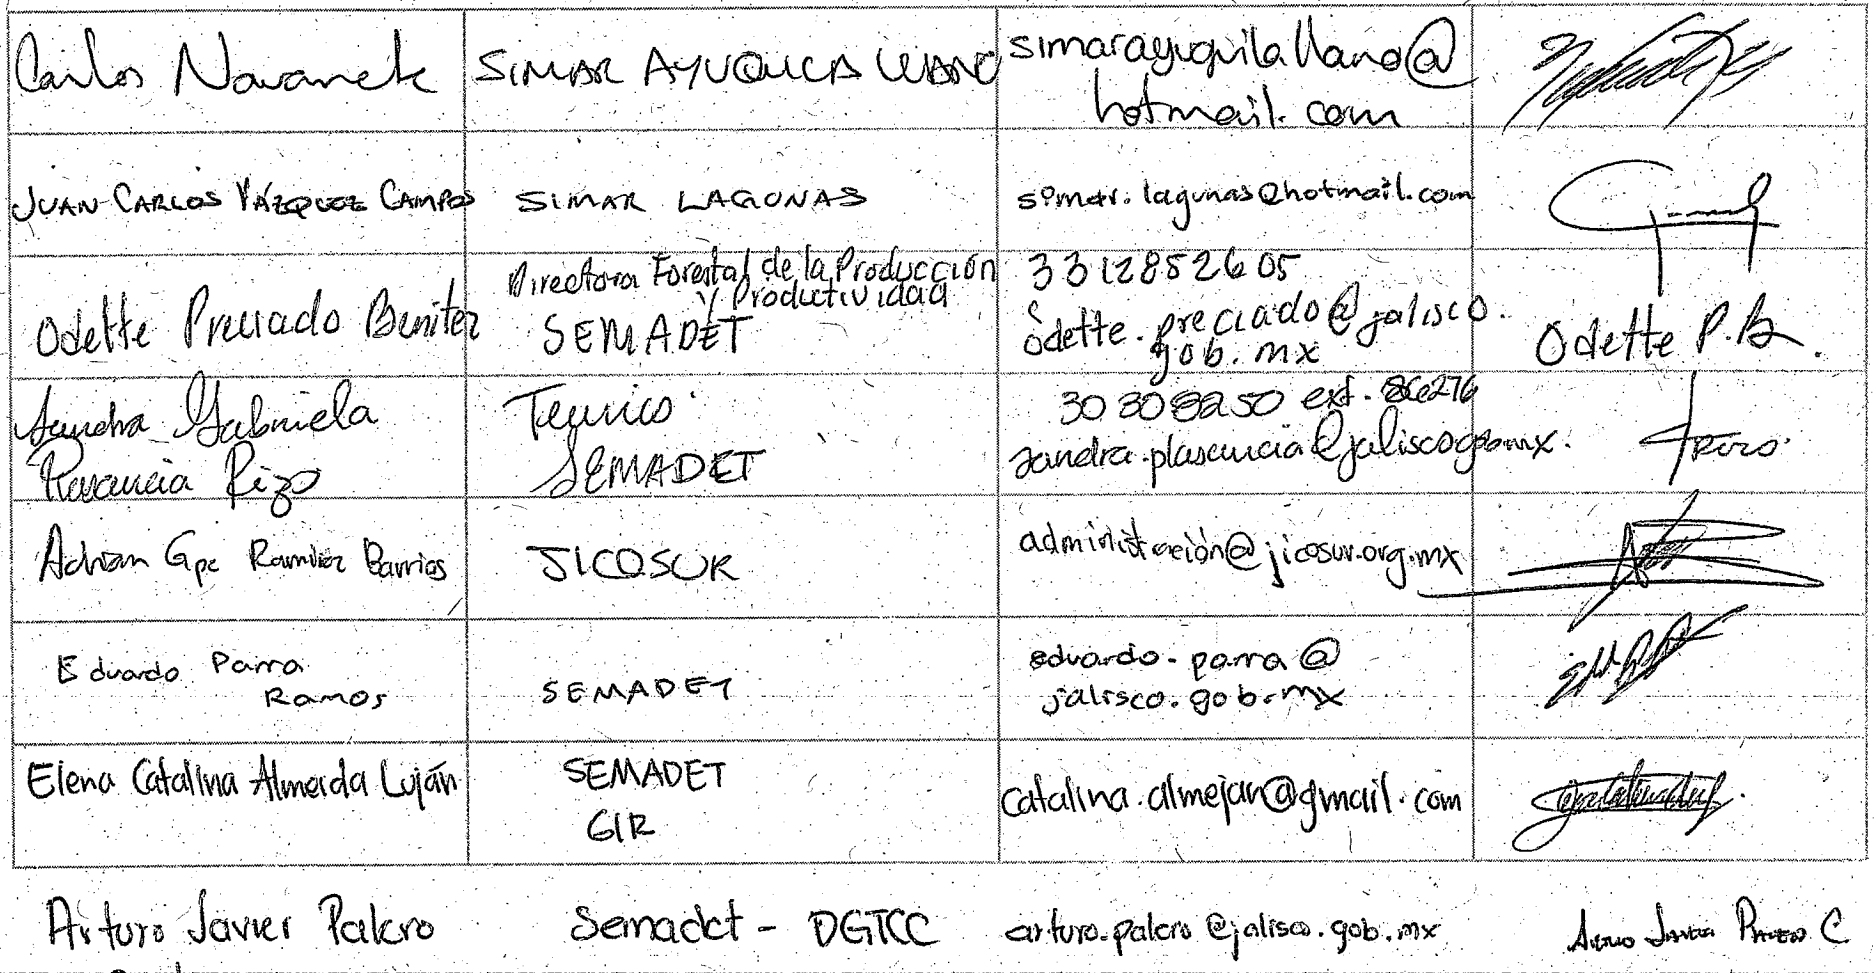 Carlos Navarrete
SIMAR AYUQUILA LLANO
simarayuquilallano@
hotmail.com
JUAN CARLOS VÁZQUEZ CAMPOS
SIMAR LAGUNAS
simar.lagunas@hotmail.com
Odette Preciado Benitez
Directora Forestal de la Producción
y Productividad
SEMADET
3312852605
odette.preciado@jalisco.
gob.mx
Odette P.B.
Sandra Gabriela
Plasencia Rizo
Tecnico
SEMADET
30308250 ext. 86276
sandra.plasencia@jaliscogobmx.
Adrian Gpe Ramirez Barrios
JICOSUR
administración@jicosur.org.mx
Eduardo Parra
Ramos
SEMADET
eduardo.parra@
jalisco.gob.mx
Elena Catalina Almeida Luján
SEMADET
GIR
catalina.almejan@gmail.com
Arturo Javier Palero
Semadet - DGTCC
arturo.palero@jalisco.gob.mx
Arturo Javier Palero C